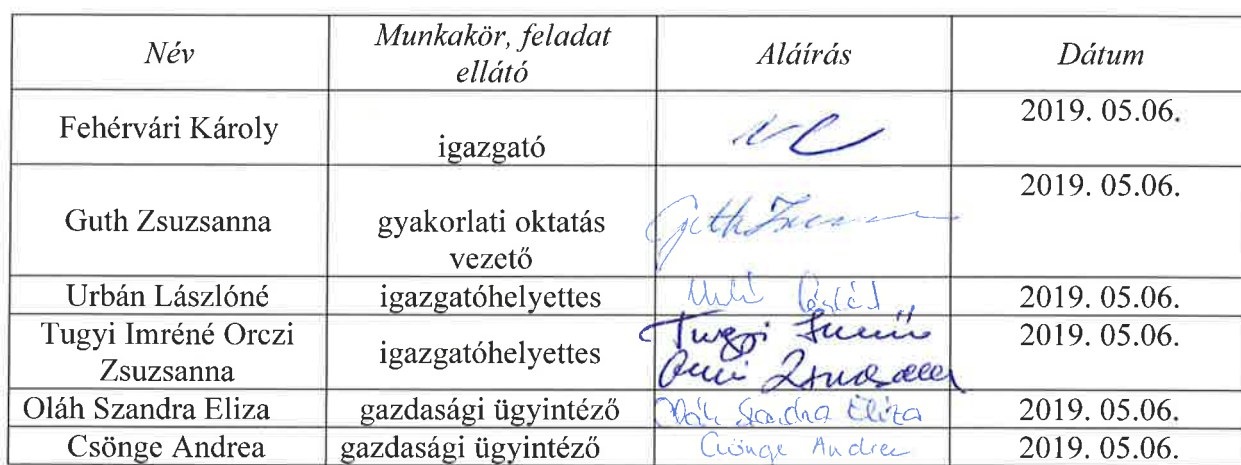 Név
Munkakör, feladat
ellátó
Aláírás
Dátum
Fehérvári Károly
igazgató
2019. 05.06.
Guth Zsuzsanna
gyakorlati oktatás
vezető
Guth Zsuzsanna
2019. 05.06.
Urbán Lászlóné
igazgatóhelyettes
2019. 05.06.
Tugyi Imréné Orczi
Zsuzsanna
igazgatóhelyettes
Tugyi Imréné
Orczi Zsuzsanna
2019. 05.06.
Oláh Szandra Eliza
gazdasági ügyintéző
Oláh Szandra Eliza
2019. 05.06.
Csönge Andrea
gazdasági ügyintéző
Csönge Andrea
2019. 05.06.